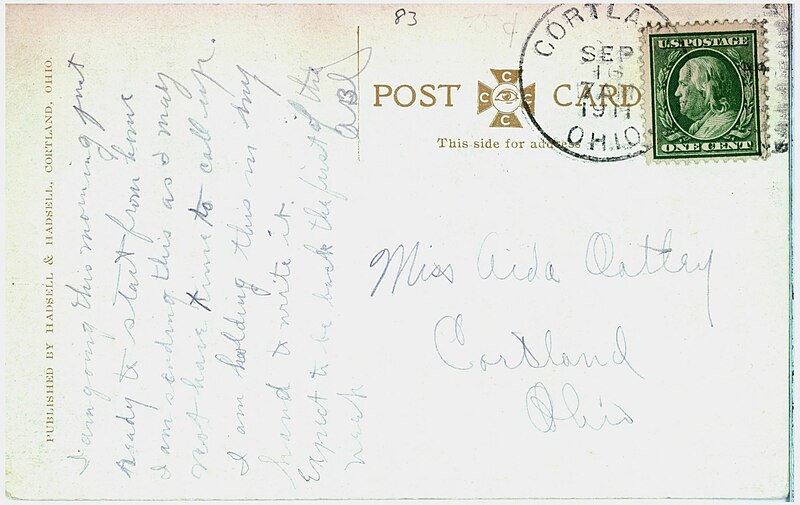 83
CORTLA
SEP
1911
OHIO
U.S. POSTAGE
ONE CENT
POST CARD
C C C C
This side for address
PUBLISHED BY HADSELL & HADSELL, CORTLAND, OHIO.
I am going this morning just
ready to start from home
I am sending this as I may
not have time to call up.
I am holding this in my
hand to write it.
Expect to be back the first of the
week
Miss Aida Oatley
Cortland
Ohio